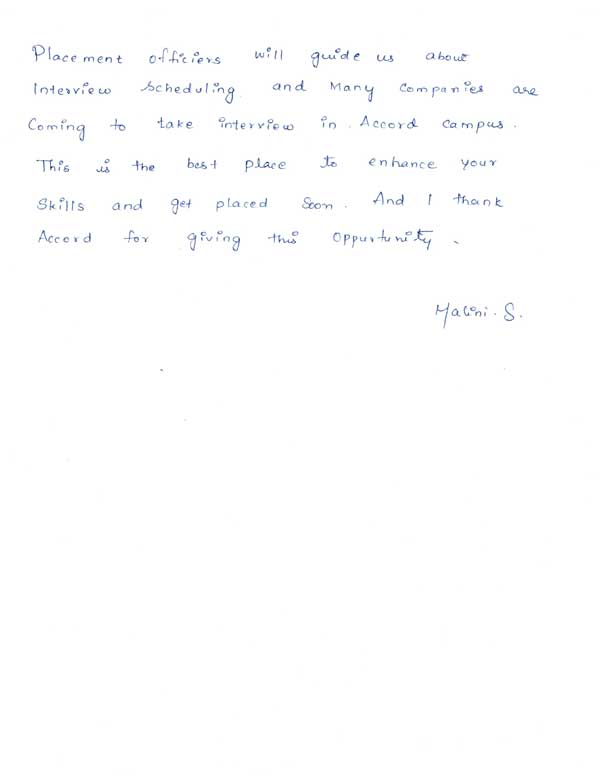 Placement officiers will guide us about
Interview Scheduling and Many Companies are
Coming to take interview in Accord campus.
This is the best place to enhance your
Skills and get placed soon. And I thank
Accord for giving this Oppurtunity.
Malini. S.